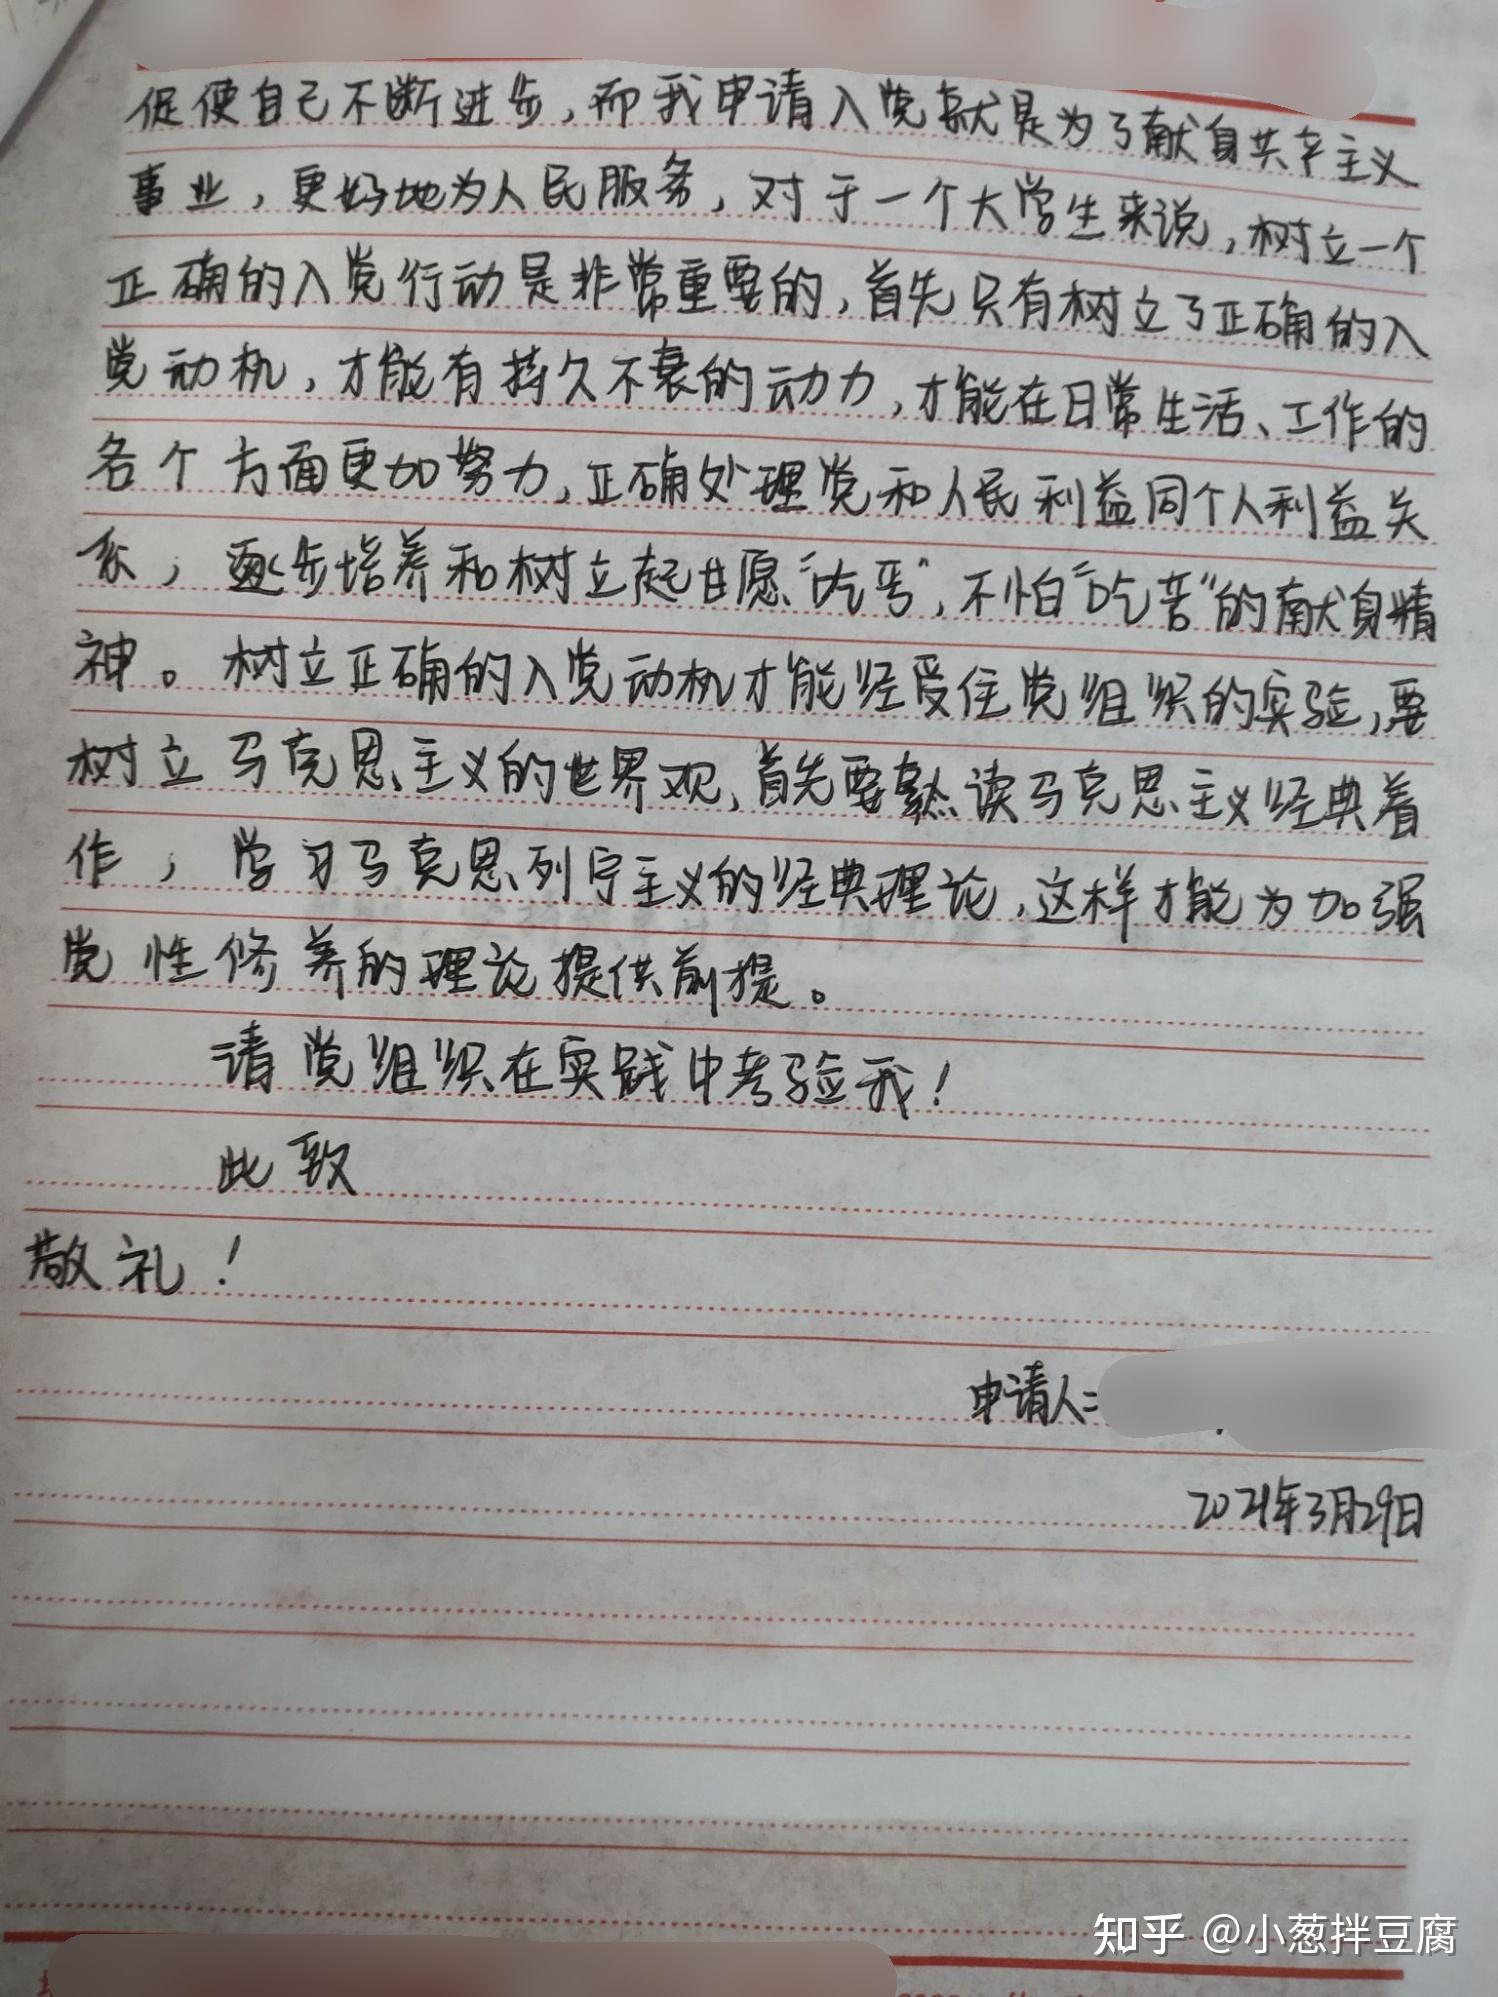 促使自己不断进步，而我申请入党就是为了献身共产主义
事业，更好地为人民服务，对于一个大学生来说，树立一个
正确的入党行动是非常重要的，首先只有树立了正确的入
党动机，才能有持久不衰的动力，才能在日常生活、工作的
各个方面更加努力，正确处理党和人民利益同个人利益关
系，逐步培养和树立起甘愿“吃亏”，不怕“吃苦”的献身精
神。树立正确的入党动机才能经受住党组织的实验，要
树立马克思主义的世界观，首先要熟读马克思主义经典着
作，学习马克思列宁主义的经典理论，这样才能为加强
党性修养的理论提供前提。
请党组织在实践中考验我！
此致
敬礼！
申请人：
2021年3月29日
知乎 @小葱拌豆腐